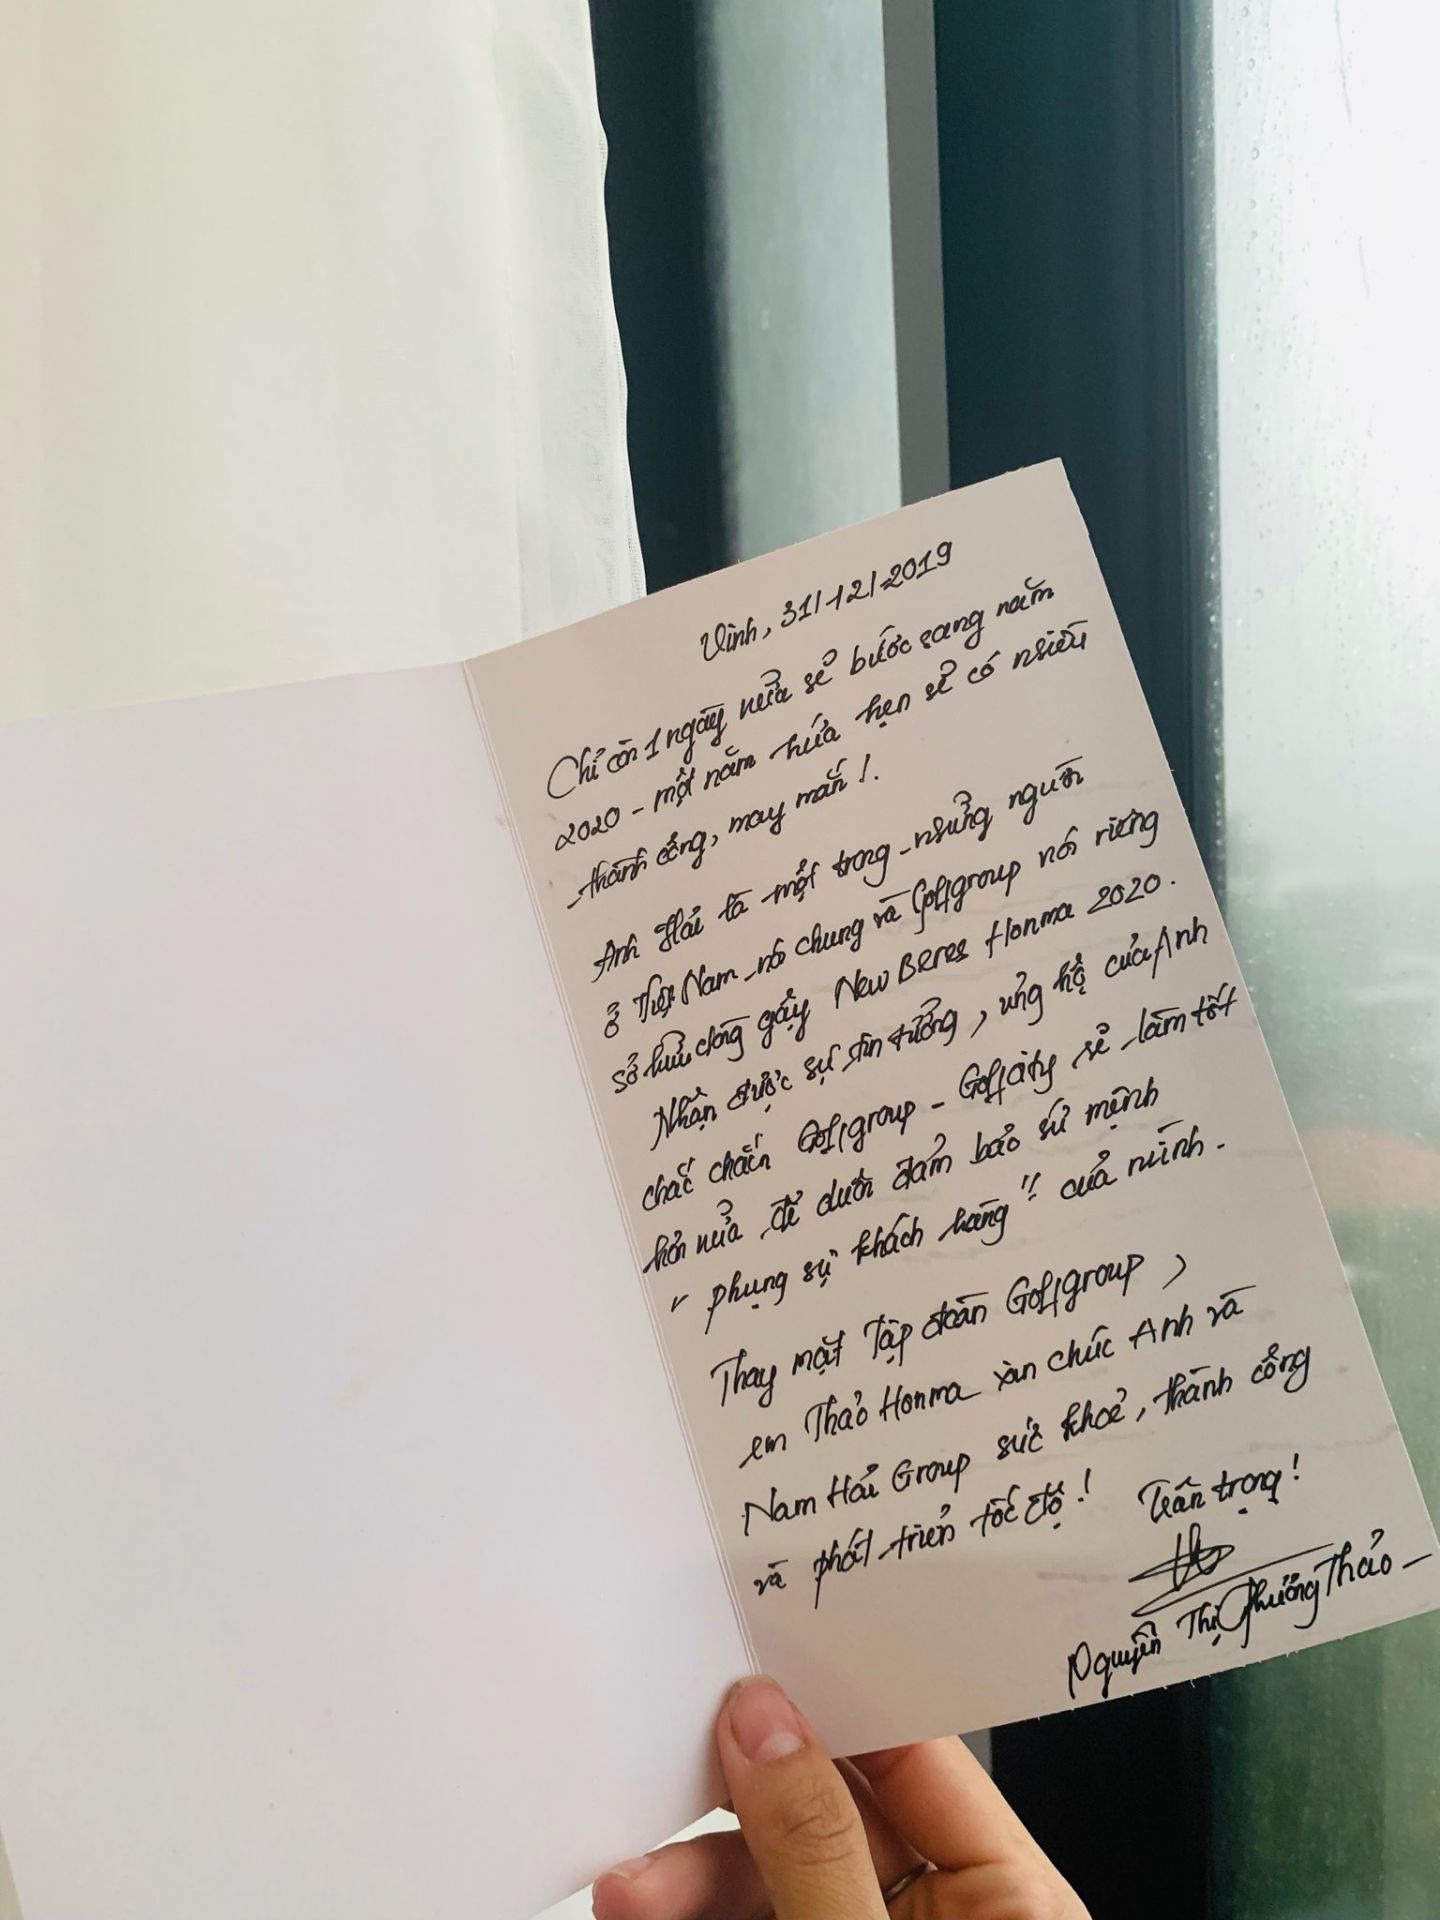 Vinh, 31/12/2019
Chỉ còn 1 ngày nữa sẽ bước sang năm
2020 - một năm hứa hẹn sẽ có nhiều
thành công, may mắn !.
Anh Hải là một trong những người
ở Việt Nam nói chung và Golfgroup nói riêng
sở hữu dòng gậy New Beres Honma 2020.
Nhận được sự tin tưởng, ủng hộ của Anh
chắc chắn Golfgroup - Golfcity sẽ làm tốt
hơn nữa để đảm bảo sứ mệnh
" phụng sự khách hàng " của mình.
Thay mặt Tập đoàn Golfgroup,
em Thảo Honma xin chúc Anh và
Nam Hải Group sức khoẻ, thành công
và phát triển tốc độ !
Trân trọng !
Nguyễn Thị Phương Thảo -